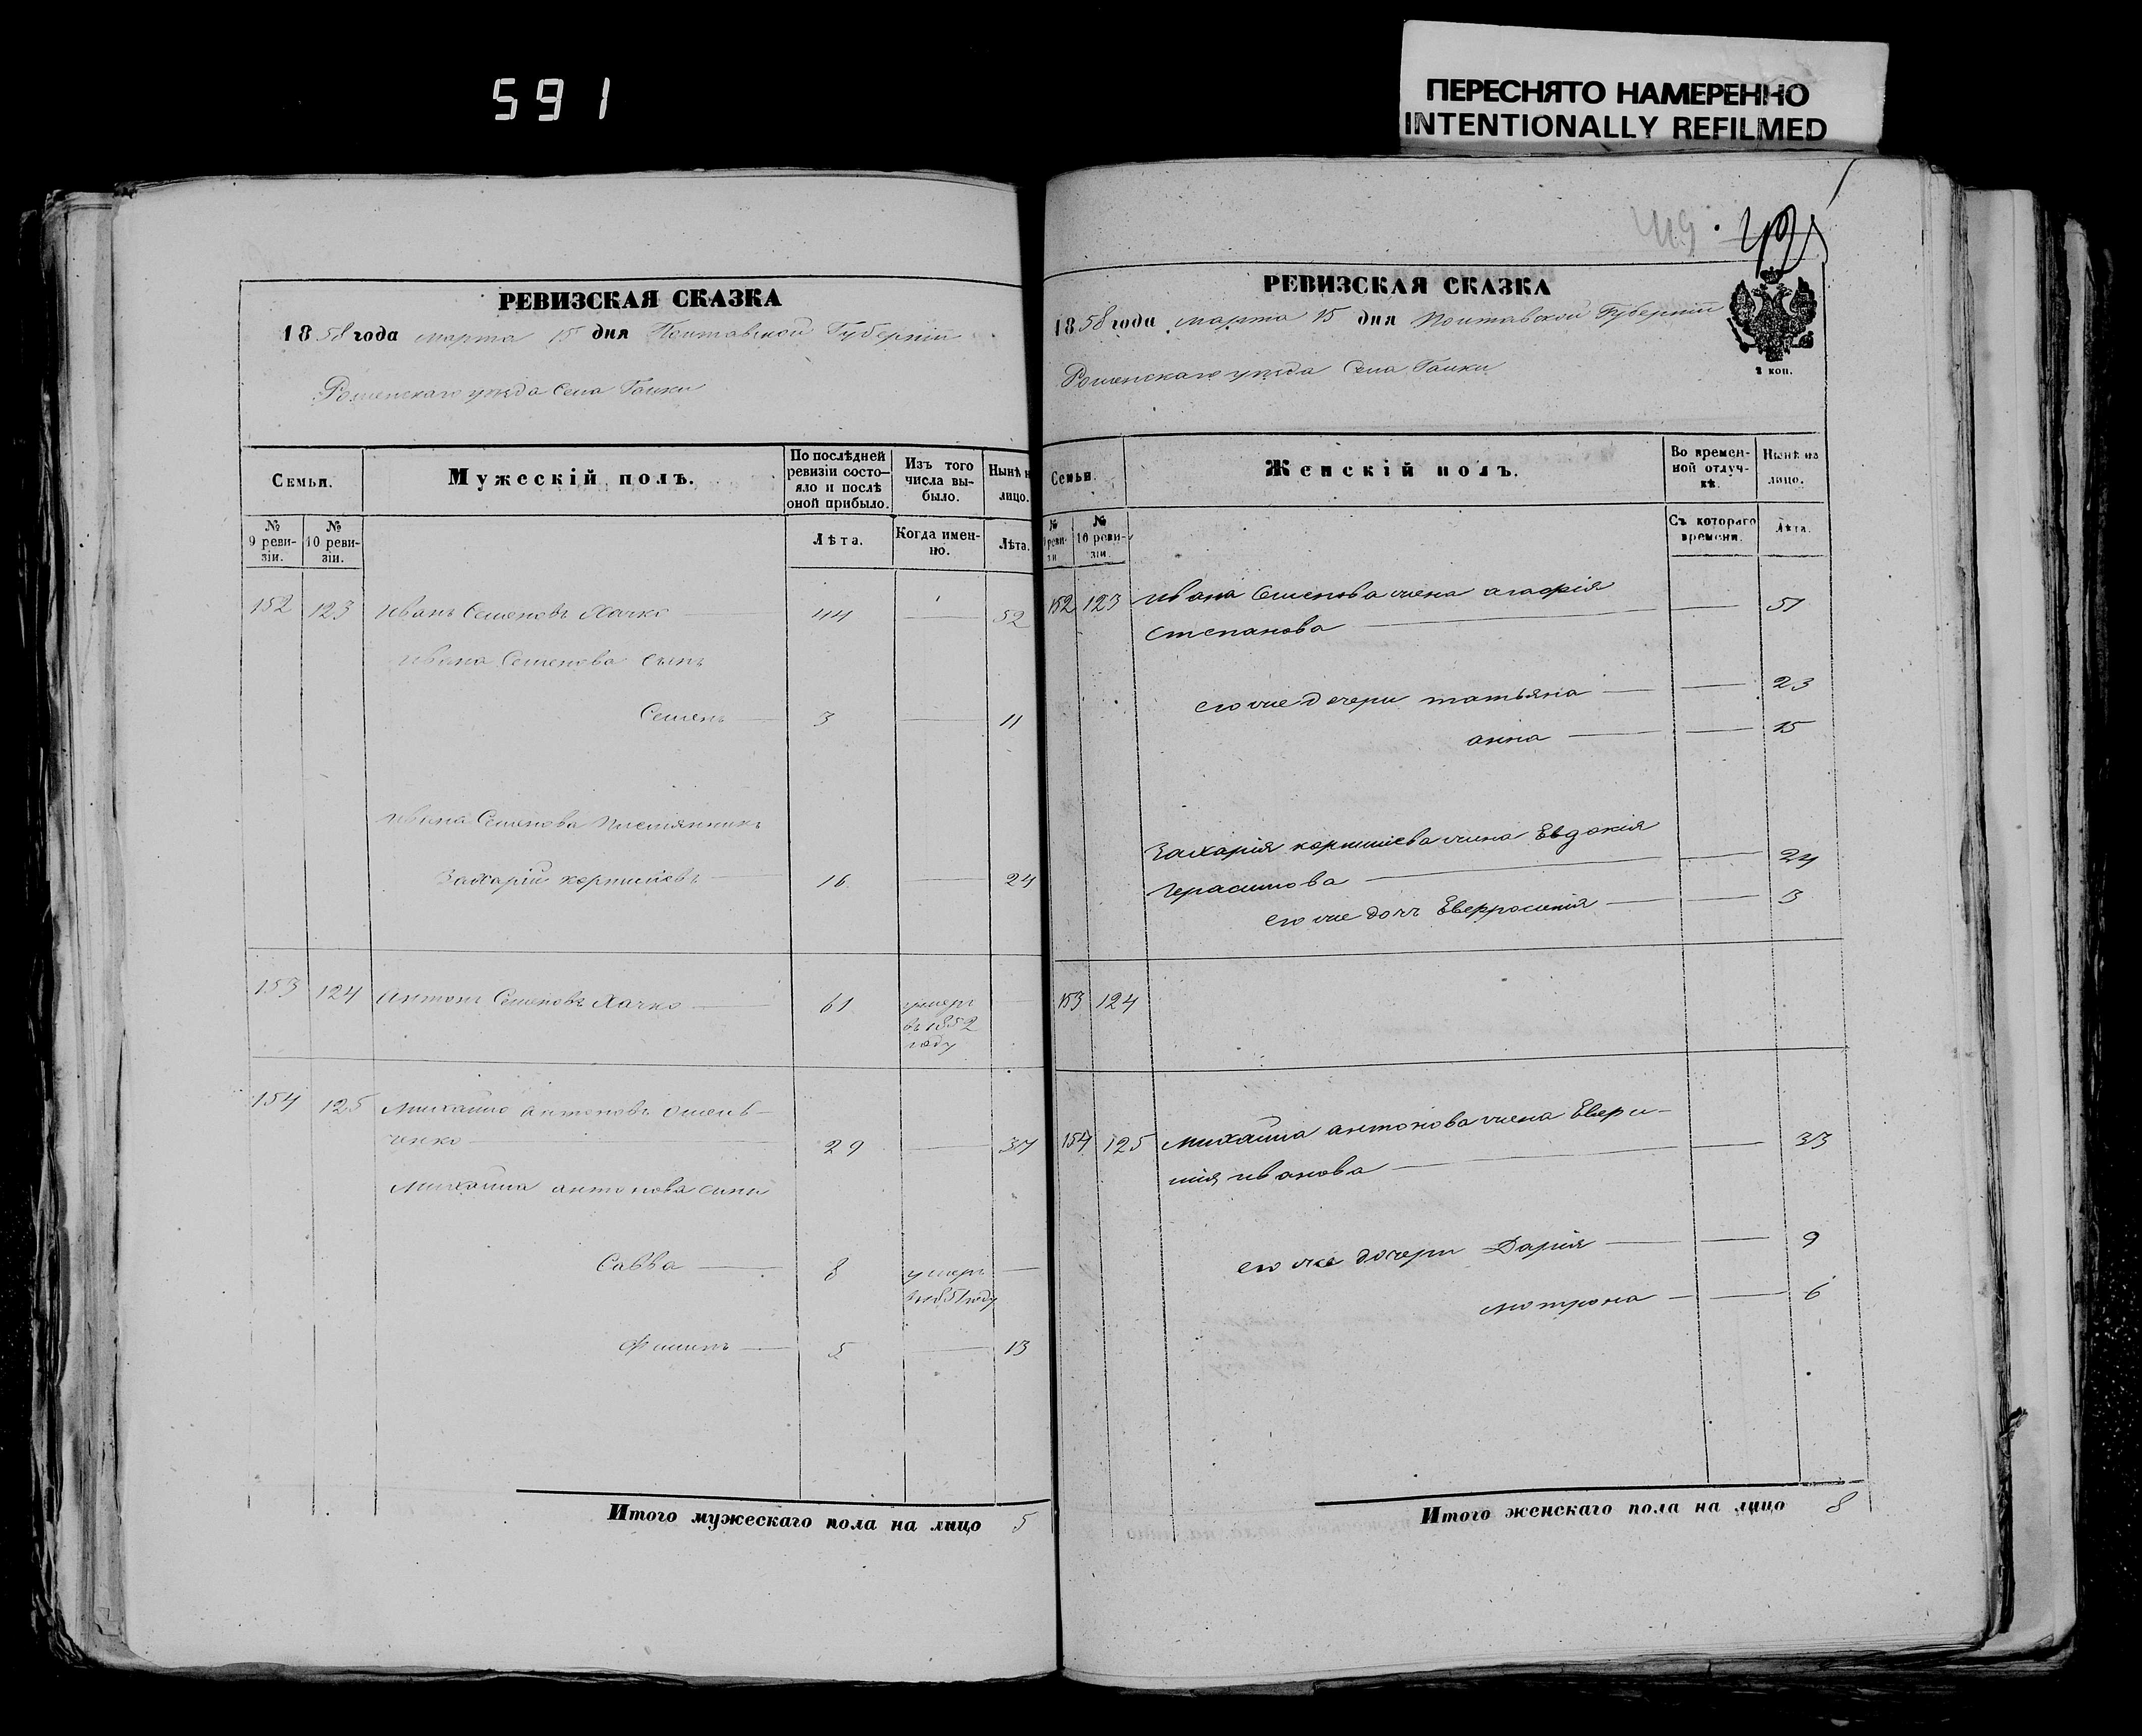 591
ПЕРЕСНЯТО НАМЕРЕННО
INTENTIONALLY REFILMED
РЕВИЗСКАЯ СКАЗКА
1858 года марта 15 дня Полтавской Губернии
Роменскаго уезда Села Галки
Семьи.
Мужескій полъ.
По послѣдней ревизіи состо-яло и послѣ оной прибыло.
Изъ того числа вы-было.
Нынѣ н лицо.
№ 9 реви-зіи.
№ 10 реви-зіи.
Лѣта.
Когда имен-но.
Лѣта.
152 123 Иванъ Семеновъ Хачко 44 52
Ивана Семенова сынъ
Семенъ 3 11
Ивана Семенова племянникъ
Захарій 16 24
153 124 Антонъ Семеновъ Хачко 61 умеръ
въ 1852
году
154 125 Михайло Антоновъ
ченко 29 37
Михайла Антонова сыны
Савва 8 умеръ
въ 1851 году
Филипъ 5 13
Итого мужескаго пола на лицо 5
РЕВИЗСКАЯ СКАЗКА
1858 года марта 15 дня Полтавской Губернии
Роменскаго уезда Села Галки
2 коп.
Семьи.
Женскій полъ.
Во времен-ной отлуч-кѣ.
Нынѣ на лицо.
№ 9 реви-зіи
№ 10 реви-зіи.
Съ котораго времени.
Лѣта.
152 123 Ивана Семенова жена агафія
Степанова 51
его же дочери татьяна 23
анна 15
Захарія жена Евдокія
Герасимова 24
его же дочь Евфросинія 3
153 124
154 125 Михайла антонова жена Евфи-
мія иванова 33
его же дочери Дарія 9
мотрона 6
Итого женскаго пола на лицо 8